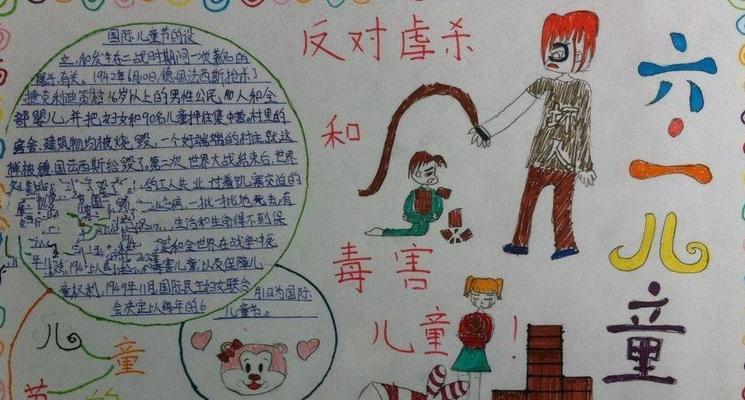 国际儿童节的设
立,和发生在二战时期间一次著名的
屠杀有关。1942年6月10日,德国法西斯枪杀了
捷克利迪策村16岁以上的男性公民 人和全
部婴儿,并把妇女和90名儿童押往集中营,村里的
房舍、建筑物均被烧毁,一个好端端的村庄就这
样被德国法西斯给毁了。第二次世界大战结束后,世界
的工人失业,过着饥寒交迫的
病,一批批地死去,有
生活和生命得不到保
和全世界在战争中死
毒害儿童,以及保障儿
童权利,1949年11月,国际民主妇女联合
会决定以每年的6月1日为国际
儿童节。
反对虐杀
和
毒害
儿童!
坏人
六·一儿童
儿童
节的